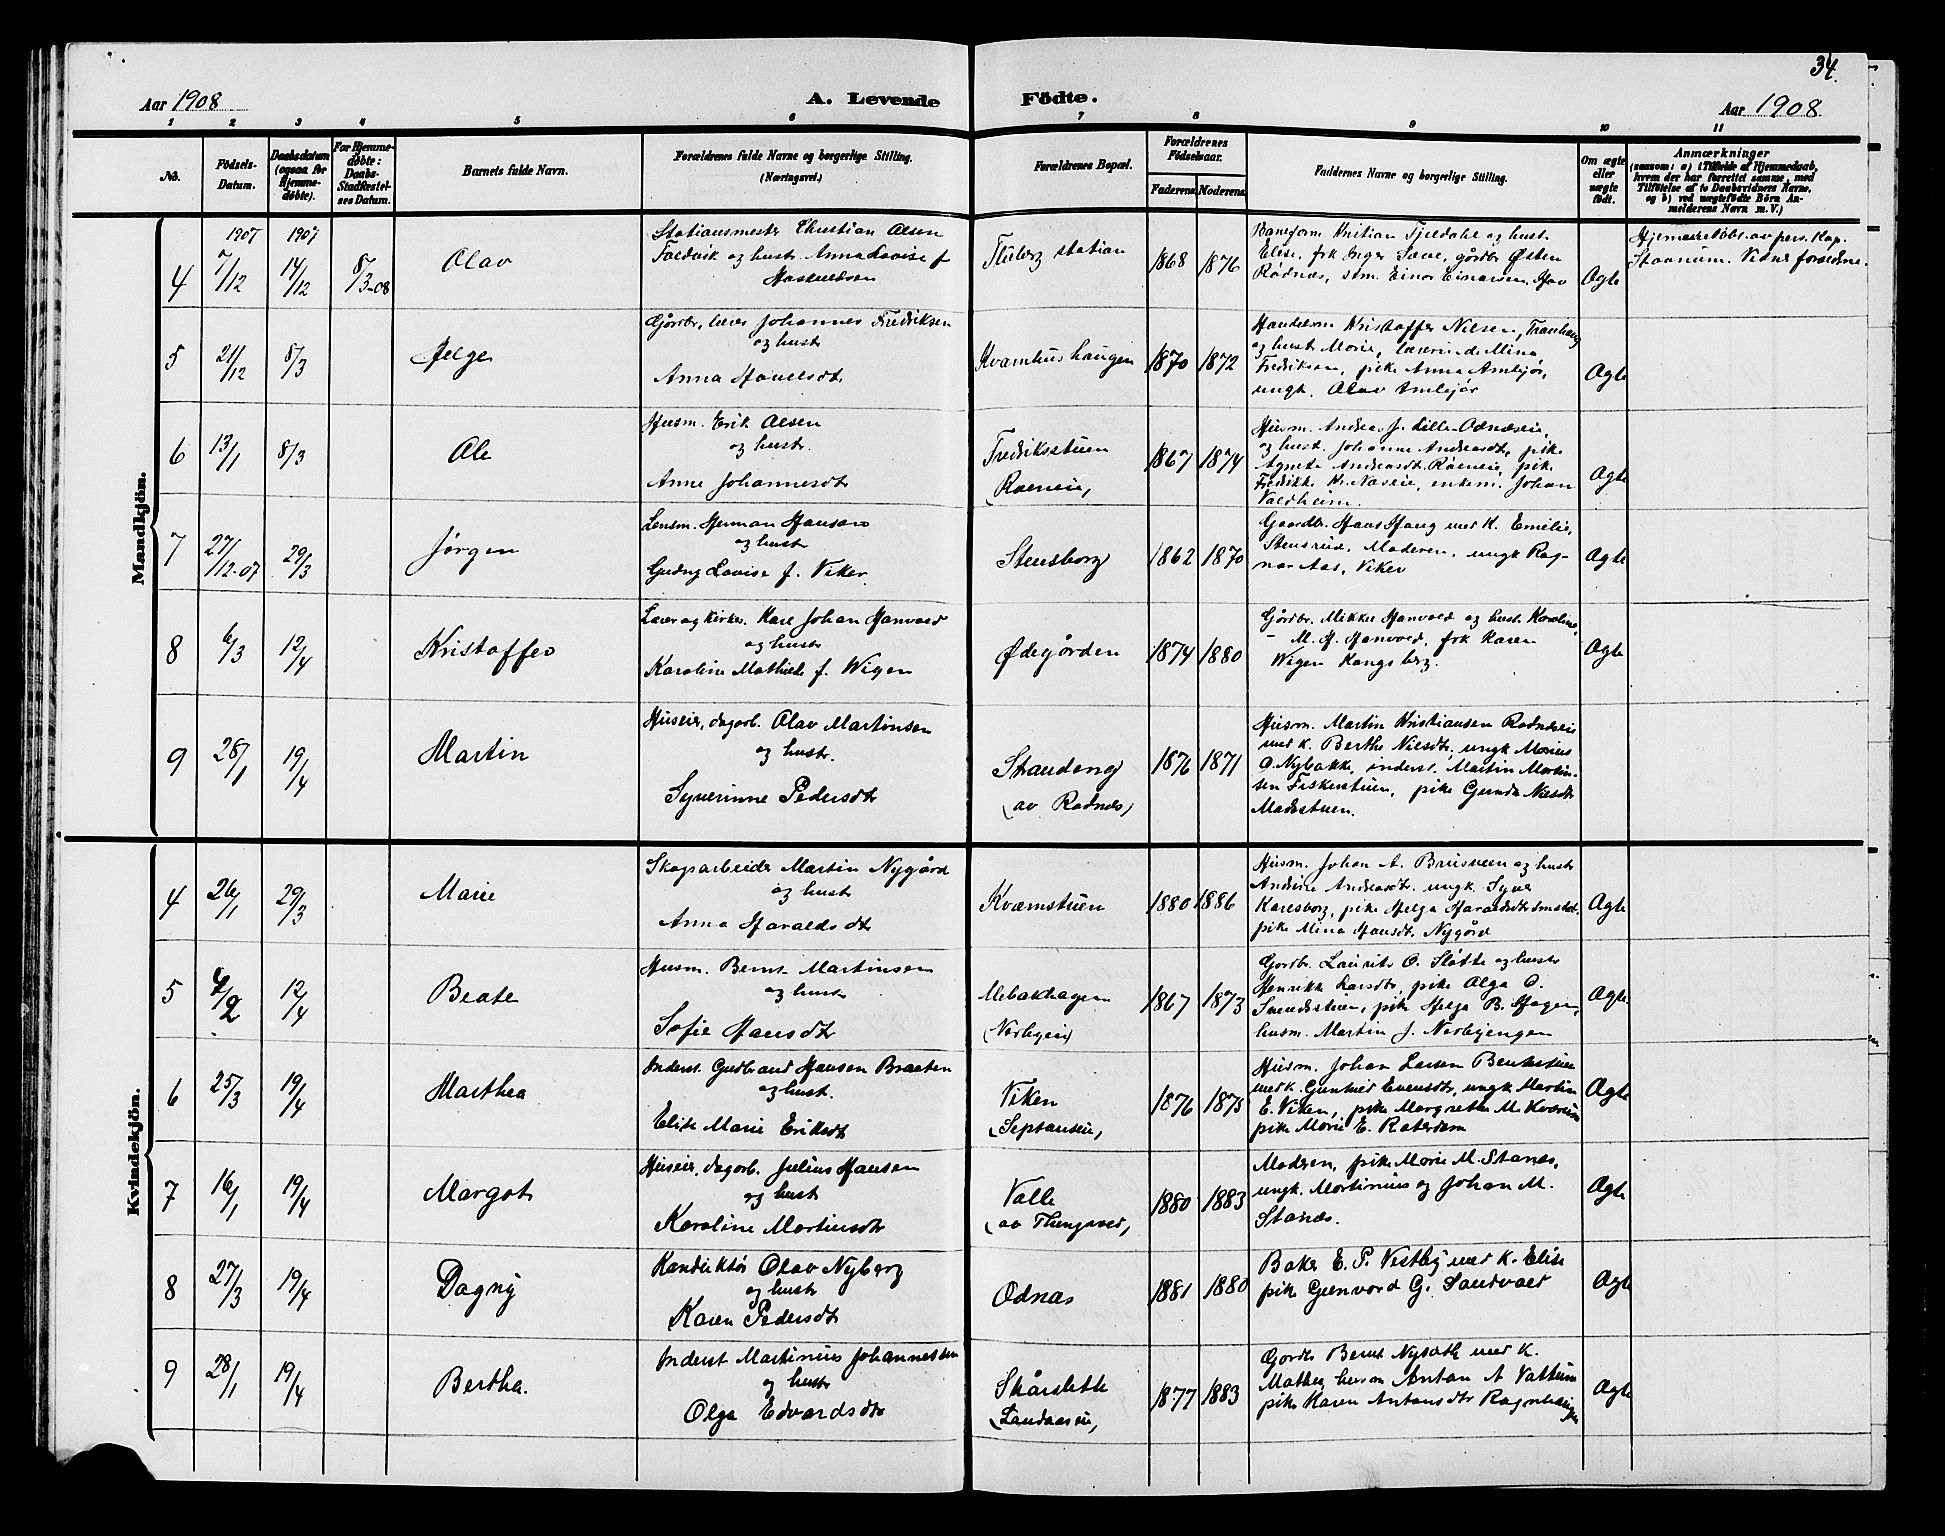 34.
Aar 1908
A. Levende Födte.
Aar 1908
1 2 3 4 5 6 7 8 9 10 11
No.
Födsels-Datum.
Daabsdatum (ogsaa for Hjemme-döbte).
For Hjemme-döbte: Daabs-Stadfæstel-ses Datum.
Barnets fulde Navn.
Forældrenes fulde Navne og borgerlige Stilling.
(Næringsvei.)
Forældrenes Bopæl.
Forældrenes Födselsaar.
Faderens. Moderens.
Faddernes Navne og borgerlige Stilling.
Om ægte eller uægte født.
Anmærkninger
(saasom: a) i Tilfælde af Hjemmedaab,
hvem der har forrettet samme, med
Tilföielse af to Daabsvidners Navne,
og b) ved uægtefødte Börn An-
melderens Navn m. V.)
Mandkjön.
4 1907 7/12 1907 14/12 8/3-08 Olav
Stationsmester Christian Olsen
Faldvik og hustr. Anna Lovise f.
Fluberg station 1868 1876
Elise, frk Inger Saue, gårdbr Østen
Rødnæs, stm. Einar Einarsen, Hov
Ægte
Hjemmedøbt av pers. kap.
5 21/12 8/3 Helge
Gårdbr, lærer Johannes Fredriksen
og hustr
Anna Hansdt.
Kvamhushaugen 1870 1872
Handelsm Kristoffer Nilsen, Tranhaug
og hust Marie, lærerinde Mina
Fredriksen, pike Anna Amlejør,
ungk. Olav Amlejør
Ægte
6 13/1 8/3 Ole
Husm. Erik Olsen
og hustr
Anne Johannesdt
Fredriksstuen
1867 1874
Husm. Andreas J. Lille-Odnæseie,
og hust. Johanne Andreasdt, pike
Agnete Andreasdt. Røeneie, pike
Fredrikke K. Næseie, enkem. Johan
Valdheim.
Ægte
7 27/12-07 29/3 Jørgen
Lensm. Herman Hansen
og hustr
Gudny Lovise f. Viker.
Stensborg 1862 1870
Gaardbr. Hans Haug med K. Emilie,
Stensrud, Moderen, ungk Rag-
nar Aas, Viker
Ægte
8 6/3 12/4 Kristoffer
Lærer og kirkes. Kare Johan Hanvold
og hustr
Karoline Mathilde f. Wigen
Ødegården 1874 1880
Gårdbr. Mikkel Hanvold og hust Karoline,
M. H. Hanvold, frk Karen
Wigen Kongsberg.
Ægte
9 28/1 19/4 Martin
Huseier, dagarb. Olav Martinsen
og hustr.
Syverinne Pedersdt
Strandeng
(av Rødnæs)
1876 1871
Husm. Martin Kristiansen Rødnæseie
med k. Berthe Nilsdt. ungk Marius
O. Nybakke, inderst. Martin Martin-
sen Fiskerstuen, pike Gunda Nilsdt
Madsstuen.
Kvindekjön.
4 26/1 29/3 Marie
Skogsarbeider Martin Nygård
og hustr
Anna Haraldsdt
Kvæmstuen 1880 1886
Husm. Johan A. Brusveen og hustr
Andrine Andreasdt. ungk Syver
Karlsborg, pike Helga Haraldsdt
pike Mina Hansdt. Nygård
Ægte
5 4/2 12/4 Beate
Husm. Bernt Martinsen
og hustr
Sofie Hansdt
1867 1873
Gårdbr. Laurits O. Sløtte og hustr
Henrikke Larsdt, pike Olga O.
pike Helga B. Hagen,
husm. Martin J. Nerbyengen
Ægte
6 25/3 19/4 Marthea
Inderst. Gudbrand Hansen Braaten
og hust.
Elise Marie Eriksdt
Viken
1876 1875
Husm. Johan Larsen Benkestuen
med k. Gunhild Evensdt, ungk Martin
E. Viken, pike Margrethe M. Kværum
pike Marie E. Roterdam
Ægte
7 16/1 19/4 Margot
Huseier, dagarb. Julius Hansen
og hust
Karoline Martinsdt
Valle
1880 1883
Moderen, pike Marie M. Stanæs,
ungk. Martinius og Johan M.
Stanæs.
Ægte
8 27/3 19/4 Dagny
Konduktør Olav Nyberg
og hustr
Karen Pedersdt
Odnæs 1881 1880
Baker E. P. Vestby med K. Elise
pike Gunvord G. Sandvold
Ægte
9 28/1 19/4 Bertha.
Inderst Martinius Johannessen
og hustr
Olga Edvardsdt
Skårslette
(Landaaseie)
1877 1883
Gårdb Bernt Nysæth med K.
Mathea, husm Anton A Vattum
pike Karen Antonsdt Ragnhaugen
Ægte